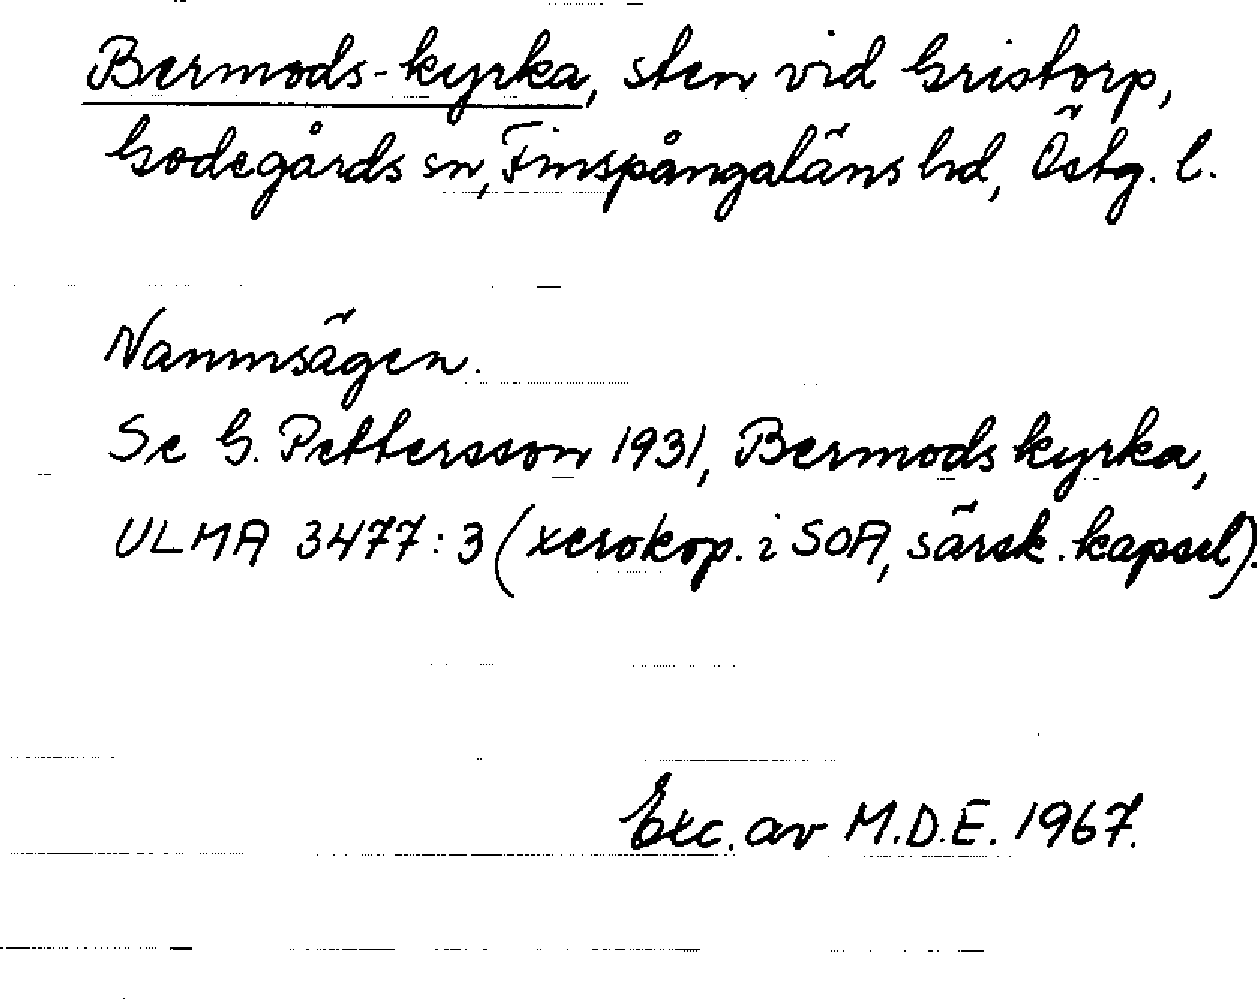 Bermods-kyrka, sten vid Gristorp,
Godegårds sn, Finspångaläns hd, Östg. l.
Namnsägen.
Se G. Pettersson 1931, Bermods kyrka,
ULMA 3477:3 (xerokop. i SOA, särsk. kapsel).
Exc. av M.D.E. 1967.